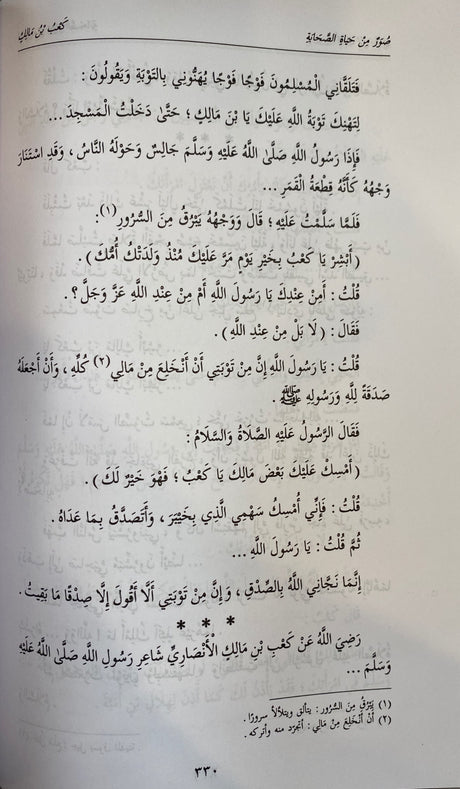 صُوَرٌ مِنْ حَيَاةِ الصَّحَابَةِ
كَعْبُ بْنُ مَالِكٍ
فَتَلَقَّانِي الْمُسْلِمُونَ فَوْجًا فَوْجًا يُهَنُّونِي بِالتَّوْبَةِ وَيَقُولُونَ :
لِتَهْنِكَ تَوْبَةُ اللَّهِ عَلَيْكَ يَا بْنَ مَالِكٍ ؛ حَتَّى دَخَلْتُ الْمَسْجِدَ ...
فَإِذَا رَسُولُ اللَّهِ صَلَّى اللَّهُ عَلَيْهِ وَسَلَّمَ جَالِسٌ وَحَوْلَهُ النَّاسُ ، وَقَدِ اسْتَنَارَ
وَجْهُهُ كَأَنَّهُ قِطْعَةُ الْقَمَرِ ...
فَلَمَّا سَلَّمْتُ عَلَيْهِ ؛ قَالَ وَوَجْهُهُ يَبْرُقُ مِنَ السُّرُورِ(١) :
( أَبْشِرْ يَا كَعْبُ بِخَيْرِ يَوْمٍ مَرَّ عَلَيْكَ مُنْذُ وَلَدَتْكَ أُمُّكَ ) .
قُلْتُ : أَمِنْ عِنْدِكَ يَا رَسُولَ اللَّهِ أَمْ مِنْ عِنْدِ اللَّهِ عَزَّ وَجَلَّ ؟ .
فَقَالَ : ( لَا بَلْ مِنْ عِنْدِ اللَّهِ ) .
قُلْتُ : يَا رَسُولَ اللَّهِ إِنَّ مِنْ تَوْبَتِي أَنْ أَنْخَلِعَ مِنْ مَالِي(٢) كُلِّهِ ، وَأَنْ أَجْعَلَهُ
صَدَقَةً لِلَّهِ وَرَسُولِهِ ﷺ .
فَقَالَ الرَّسُولُ عَلَيْهِ الصَّلَاةُ وَالسَّلَامُ :
( أَمْسِكْ عَلَيْكَ بَعْضَ مَالِكَ يَا كَعْبُ ؛ فَهْوَ خَيْرٌ لَكَ ) .
قُلْتُ : فَإِنِّي أُمْسِكُ سَهْمِي الَّذِي بِخَيْبَرَ ، وَأَتَصَدَّقُ بِمَا عَدَاهُ .
ثُمَّ قُلْتُ : يَا رَسُولَ اللَّهِ ...
إِنَّمَا نَجَّانِي اللَّهُ بِالصِّدْقِ ، وَإِنَّ مِنْ تَوْبَتِي أَلَّا أَقُولَ إِلَّا صِدْقًا مَا بَقِيتُ .
* * *
رَضِيَ اللَّهُ عَنْ كَعْبِ بْنِ مَالِكٍ الْأَنْصَارِيِّ شَاعِرِ رَسُولِ اللَّهِ صَلَّى اللَّهُ عَلَيْهِ
وَسَلَّمَ ...
(١) يَبْرُقُ مِنَ السُّرُورِ : يتألق ويتلألأ سرورًا .
(٢) أَنْ أَنْخَلِعَ مِنْ مَالِي : أتجرّد منه وأتركه .
٣٣٠